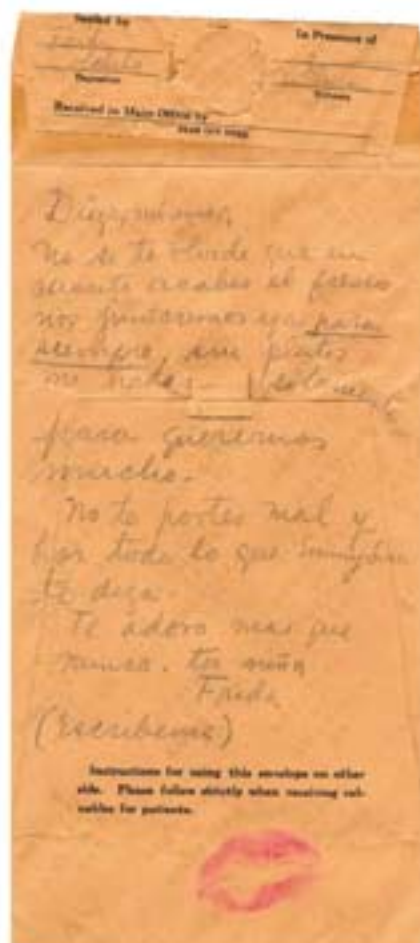 Sealed by
In Presence of
Signature
Witness
Received in Main Office by
Diego, mi amor,
No se te olvide que en
cuanto acabes el fresco
nos juntaremos ya para
siempre, sin pleitos
ni nada, solamente
para querernos
mucho.
No te portes mal y
haz todo lo que
te diga.
Te adoro mas que
nunca. tu niña
Frida
(Escribeme)
Instructions for using this envelope on other
side. Please follow strictly when receiving val-
uables for patients.